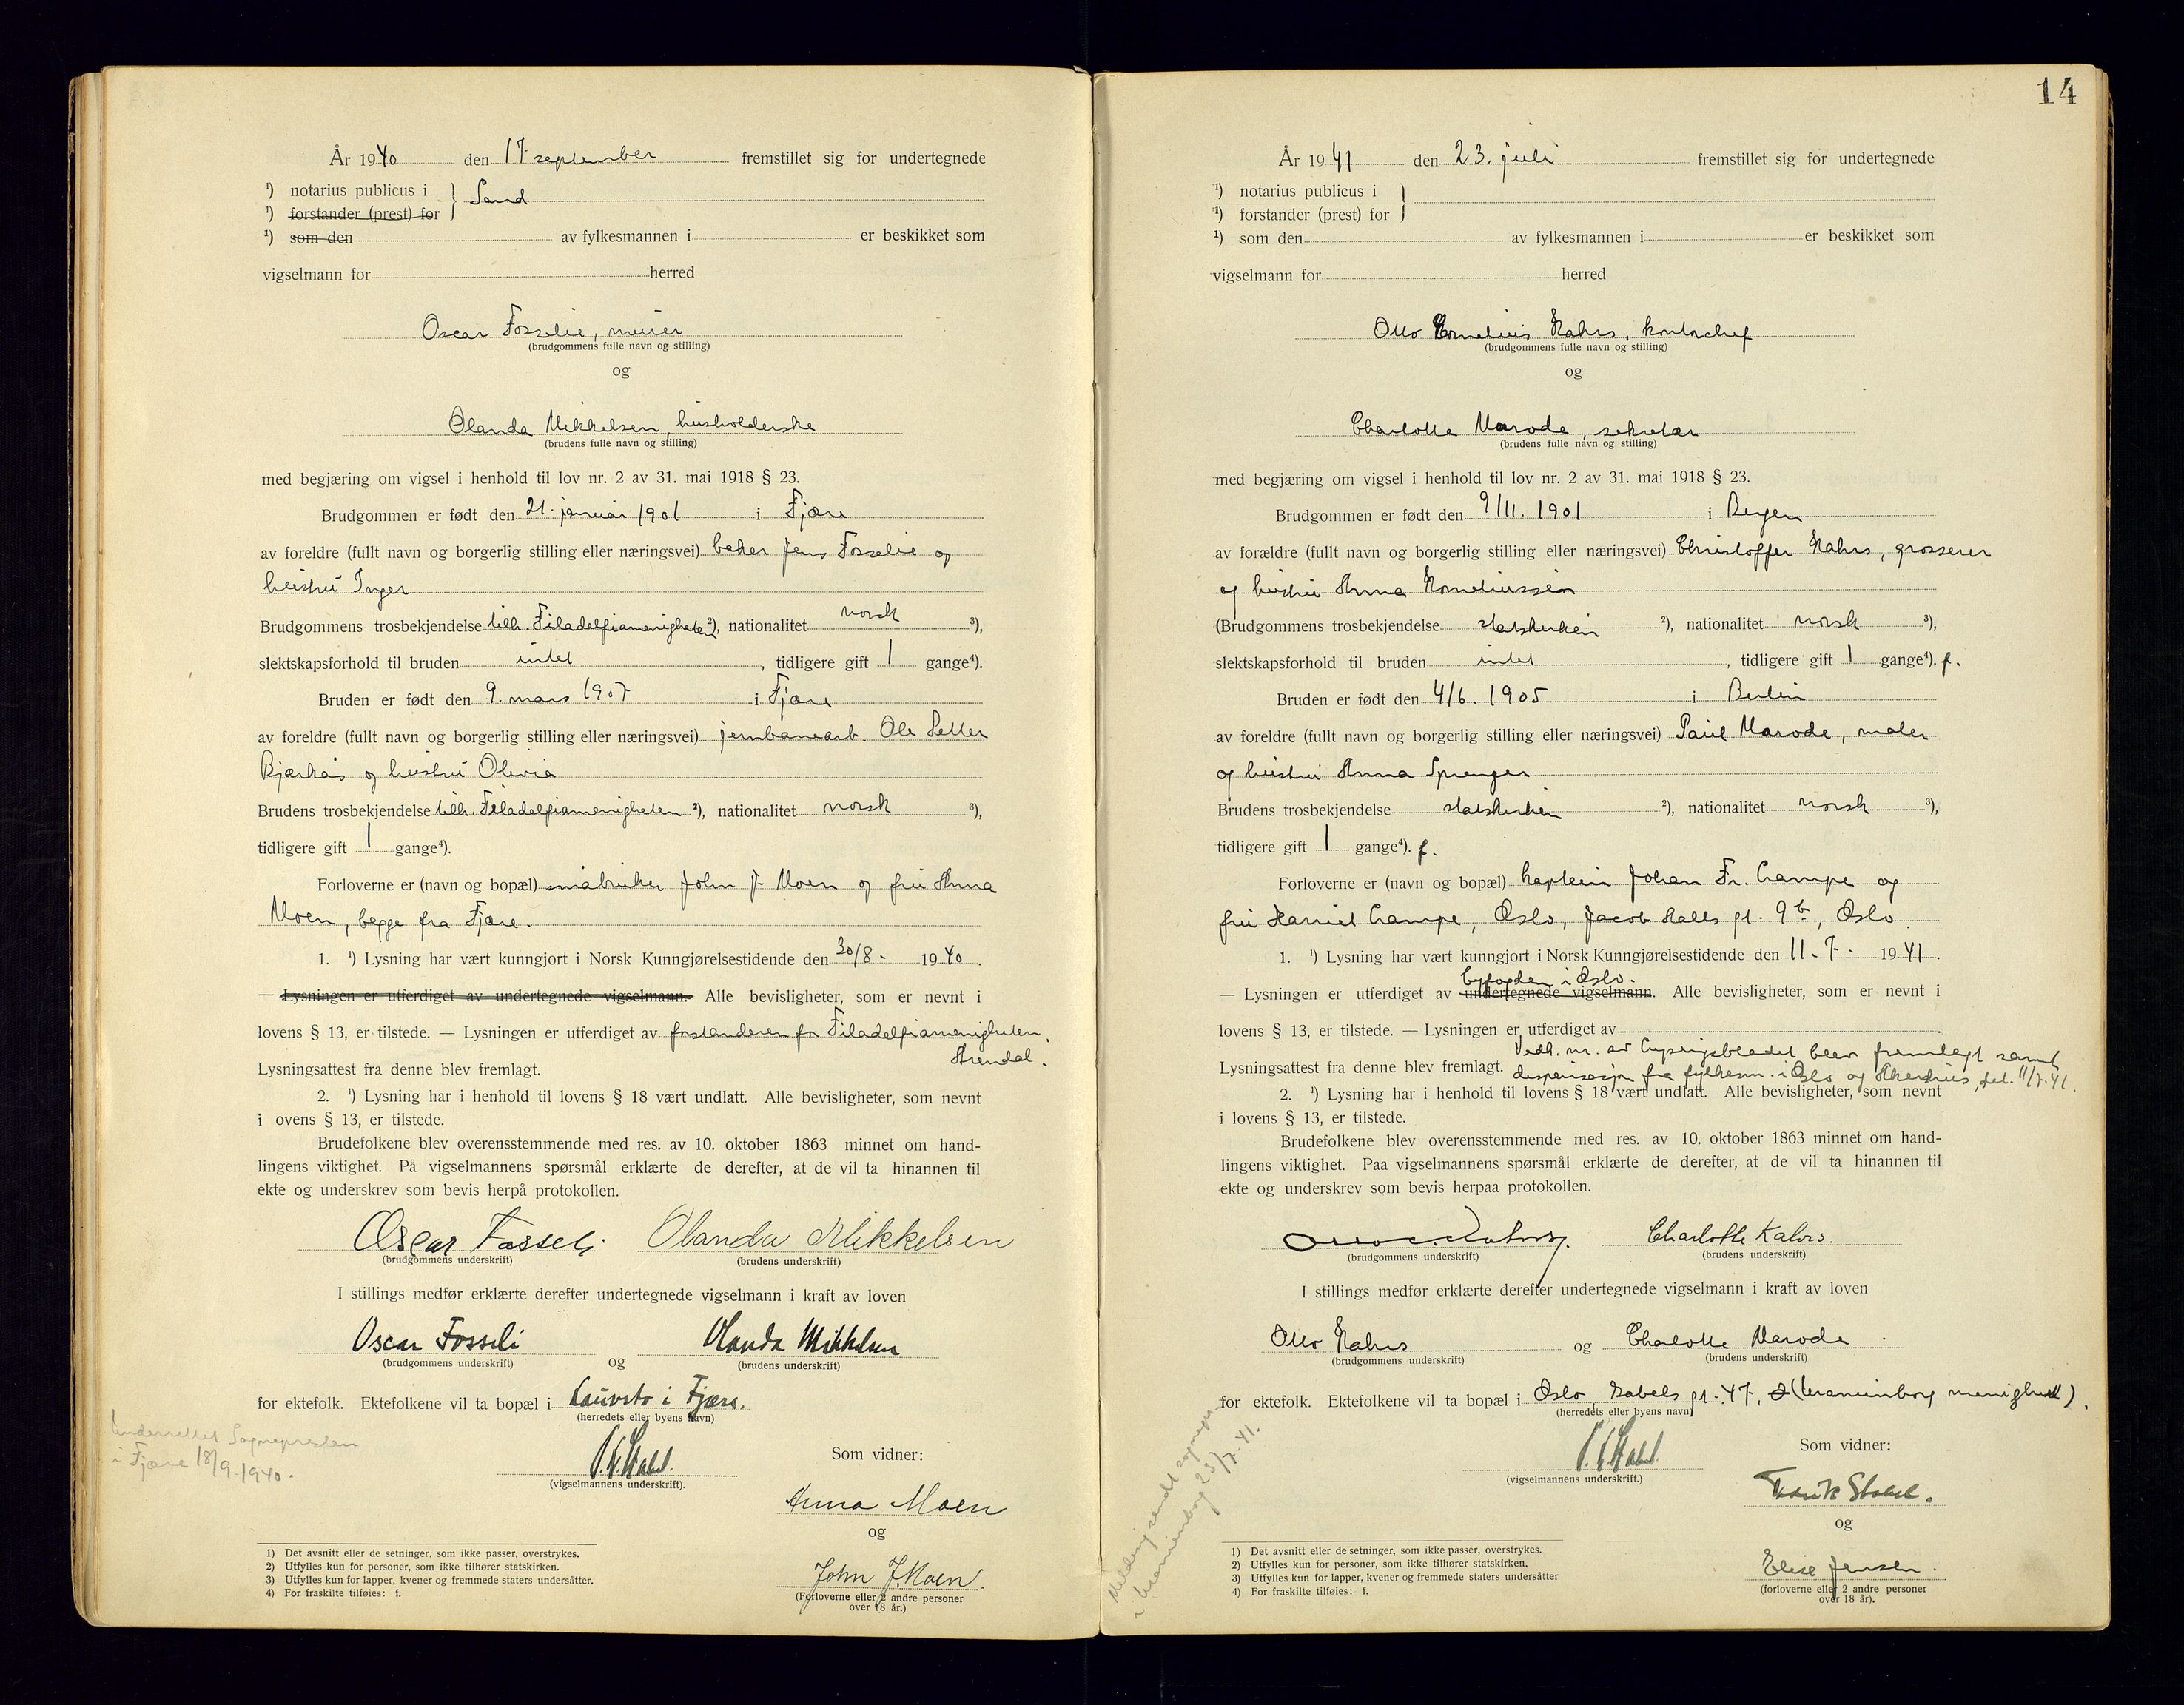 År 1940 den 17 september fremstillet sig for undertegnede
¹) notarius publicus i } Sand
¹) forstander (prest) for
¹) som den av fylkesmannen i er beskikket som
vigselmann for herred
Oscar Fosselie, murer
(brudgommens fulle navn og stilling)
og
Olanda Mikkelsen, husholderske
(brudens fulle navn og stilling)
med begjæring om vigsel i henhold til lov nr. 2 av 31. mai 1918 § 23.
Brudgommen er født den 21. januar 1901 i Fjære
av foreldre (fullt navn og borgerlig stilling eller næringsvei) baker Jens Fosselie og
hustru Inger
Brudgommens trosbekjendelse tilh. Filadelfiamenigheten ²), nationalitet norsk ³),
slektskapsforhold til bruden intet, tidligere gift 1 gange⁴).
Bruden er født den 9. mars 1907 i Fjære
av foreldre (fullt navn og borgerlig stilling eller næringsvei) jernbanearb. Ole Setter
Bjørkås og hustru Olivia
Brudens trosbekjendelse tilh. Filadelfiamenigheten ²), nationalitet norsk ³),
tidligere gift 1 gange⁴).
Forloverne er (navn og bopæl) småbruker John J. Moen og fru Anna
Moen, begge fra Fjære.
1. ¹) Lysning har vært kunngjort i Norsk Kunngjørelsestidende den 30/8 - 1940.
— Lysningen er utferdiget av undertegnede vigselmann. Alle bevisligheter, som er nevnt i
lovens § 13, er tilstede. — Lysningen er utferdiget av forstanderen for Filadelfiamenigheten,
Arendal.
Lysningsattest fra denne blev fremlagt.
2. ¹) Lysning har i henhold til lovens § 18 vært undlatt. Alle bevisligheter, som nevnt
i ovens § 13, er tilstede.
Brudefolkene blev overensstemmende med res. av 10. oktober 1863 minnet om hand-
lingens viktighet. På vigselmannens spørsmål erklærte de derefter, at de vil ta hinannen til
ekte og underskrev som bevis herpå protokollen.
Oscar Fosseli Olanda Mikkelsen
(brudgommens underskrift) (brudens underskrift)
I stillings medfør erklærte derefter undertegnede vigselmann i kraft av loven
Oscar Fosseli og Olanda Mikkelsen
(brudgommens underskrift) (brudens underskrift)
for ektefolk. Ektefolkene vil ta bopæl i Lauvsto i Fjære.
(herredets eller byens navn)
Underrettet Sognepresten
i Fjære 18/9-1940.
(vigselmannens underskrift).
Som vidner:
Anna Moen
og
John J. Moen.
(Forloverne eller 2 andre personer
over 18 år.)
1) Det avsnitt eller de setninger, som ikke passer, overstrykes.
2) Utfylles kun for personer, som ikke tilhører statskirken.
3) Utfylles kun for lapper, kvener og fremmede staters undersåtter.
4) For fraskilte tilføies: f.
14
År 1941 den 23. juli fremstillet sig for undertegnede
¹) notarius publicus i }
¹) forstander (prest) for
¹) som den av fylkesmannen i er beskikket som
vigselmann for herred
Otto Kornelius Kahrs, kontorchef
(brudgommens fulle navn og stilling)
og
Charlotte Marode, sekretær
(brudens fulle navn og stilling)
med begjæring om vigsel i henhold til lov nr. 2 av 31. mai 1918 § 23.
Brudgommen er født den 9/11. 1901 i Bergen
av forældre (fullt navn og borgerlig stilling eller næringsvei) Christoffer Kahrs, grosserer
og hustru Anna Korneliussen
(Brudgommens trosbekjendelse statskirken ²), nationalitet norsk ³),
slektskapsforhold til bruden intet, tidligere gift 1 gange⁴). f.
Bruden er født den 4/6. 1905 i Berlin
av foreldre (fullt navn og borgerlig stilling eller næringsvei) Paul Marode, maler
og hustru Anna Sprenger
Brudens trosbekjendelse statskirken ²), nationalitet norsk ³),
tidligere gift 1 gange⁴). f.
Forloverne er (navn og bopæl) kaptein Johan Fr. Crampe og
fru Harriet Crampe, Oslo, Jacob Halls gt. 9b, Oslo.
1. ¹) Lysning har vært kunngjort i Norsk Kunngjørelsestidende den 11.-7.- 1941.
byfogden i Oslo.
— Lysningen er utferdiget av undertegnede vigselmann. Alle bevisligheter, som er nevnt i
lovens § 13, er tilstede. — Lysningen er utferdiget av
Vedk. nr. av lysingsbladet blev fremlagt samt
Lysningsattest fra denne blev fremlagt. dispensasjon fra fylkesm. i Oslo og Akershus, dat. 11/7.41.
2. ¹) Lysning har i henhold til lovens § 18 vært undlatt. Alle bevisligheter, som nevnt
i lovens § 13, er tilstede.
Brudefolkene blev overensstemmende med res. av 10. oktober 1863 minnet om hand-
lingens viktighet. Paa vigselmannens spørsmål erklærte de derefter, at de vil ta hinannen til
ekte og underskrev som bevis herpaa protokollen.
Otto C. Kahrs. Charlotte Kahrs.
(brudgommens underskrift) (brudens underskrift)
I stillings medfør erklærte derefter undertegnede vigselmann i kraft av loven
Otto Kahrs og Charlotte Marode.
(brudgommens underskrift) (brudens underskrift)
for ektefolk. Ektefolkene vil ta bopæl i Oslo, Gabels gt. 47, (Uranienborg menighet).
(herredets eller byens navn)
Melding sendt sogneprest
i Uranienborg 23/7-41.
(vigselmannens underskrift.)
Som vidner:
Fredrik Stabel.
og
Elise Jensen.
(forloverne eller 2 andre personer
over 18 år).
1) Det avsnitt eller de setninger, som ikke passer, overstrykes.
2) Utfylles kun for personer, som ikke tilhører statskirken.
3) Utfylles kun for lapper, kvener og fremmede staters undersåtter
4) For fraskilte tilføies: f.